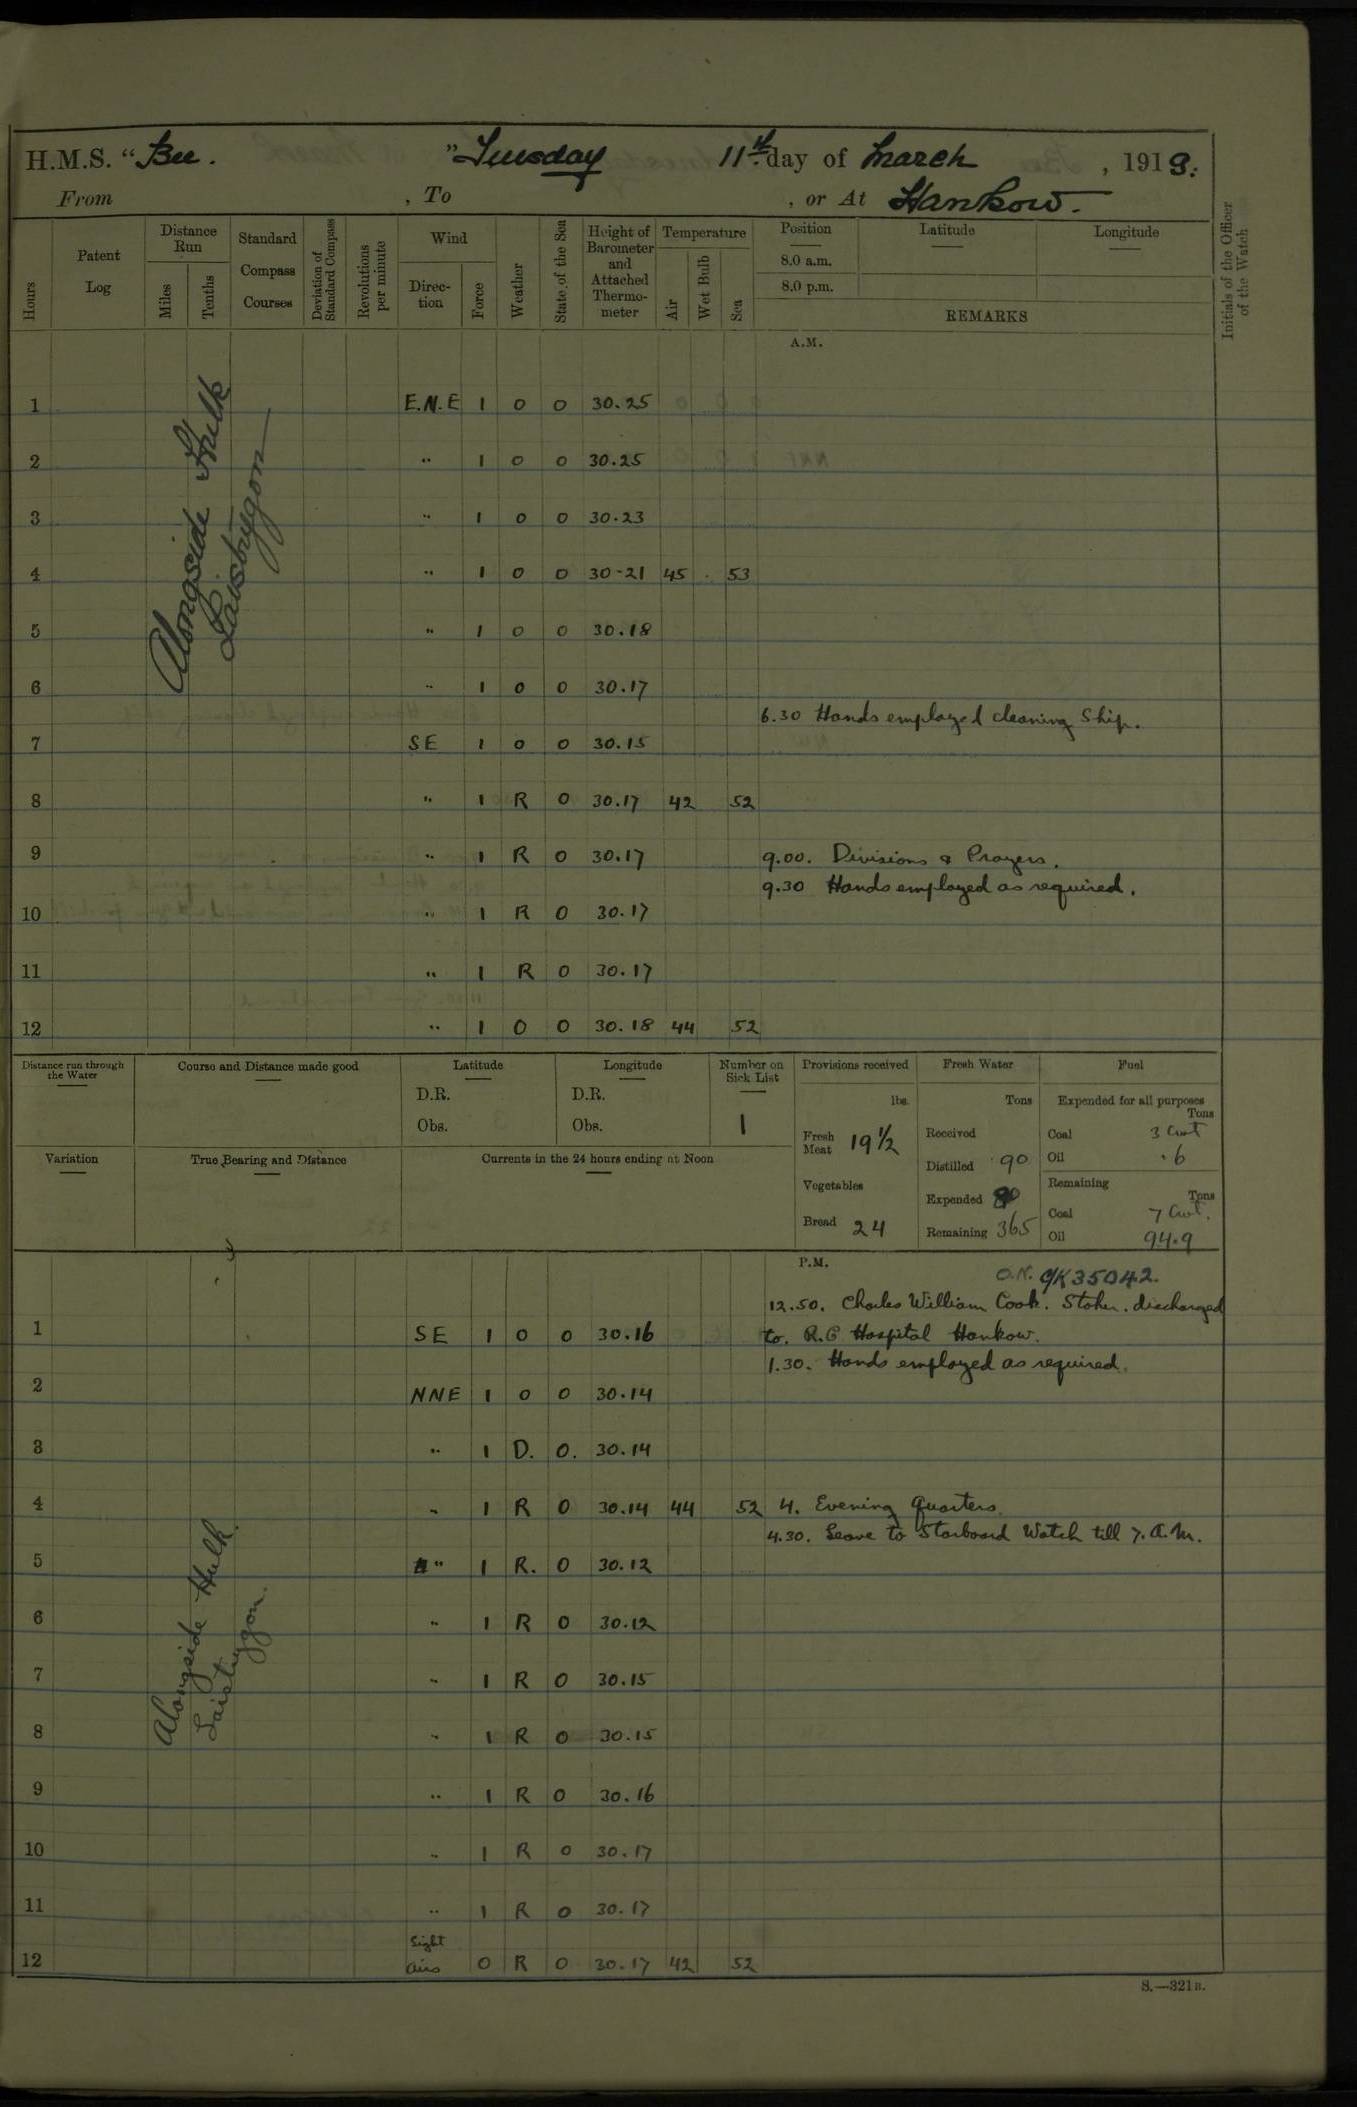 H.M.S. "Bee. "Tuesday 11th day of March, 1919.
From , To , or At Hankow.
Hours
Patent Log
Distance Run
Miles
Tenths
Standard Compass Courses
Deviation of Standard Compass
Revolutions per minute
Wind
Direction
Force
Weather
State of the Sea
Height of Barometer and Attached Thermometer
Temperature
Air
Wet Bulb
Sea
Position
8.0 a.m.
8.0 p.m.
Latitude
Longitude
REMARKS
Initials of the Officer of the Watch
A.M.
Alongside Hulk
1 E.N.E 1 0 0 30.25
2 " 1 0 0 30.25
3 " 1 0 0 30.23
4 " 1 0 0 30-21 45 53
5 " 1 0 0 30.18
6 " 1 0 0 30.17
6.30 Hands employed cleaning Ship.
7 SE 1 0 0 30.15
8 " 1 R 0 30.17 42 52
9 " 1 R 0 30.17 9.00. Divisions & Prayers.
9.30 Hands employed as required.
10 " 1 R 0 30.17
11 " 1 R 0 30.17
12 " 1 0 0 30.18 44 52
Distance run through the Water
Course and Distance made good
Latitude
D.R.
Obs.
Longitude
D.R.
Obs.
Number on Sick List
1
Variation
True Bearing and Distance
Currents in the 24 hours ending at Noon
Provisions received
lbs.
Fresh Meat 19 1/2
Vegetables
Bread 24
Fresh Water
Tons
Received
Distilled 90
Expended
Remaining 365
Fuel
Expended for all purposes
Tons
Coal 3 Cwt
Oil .6
Remaining
Tons
Coal 7 Cwt.
Oil 94.9
P.M.
O.N. K35042.
12.50. Charles William Cook. Stoker. discharged
1 SE 1 0 0 30.16 to. R.C Hospital Hankow.
1.30. Hands employed as required.
2 NNE 1 0 0 30.14
3 " 1 D. 0. 30.14
4 " 1 R 0 30.14 44 52 4. Evening Quarters.
4.30. Leave to Starboard Watch till 7. A.M.
Alongside Hulk
5 " 1 R. 0 30.12
6 " 1 R 0 30.12
7 " 1 R 0 30.15
8 " 1 R 0 30.15
9 " 1 R 0 30.16
10 " 1 R 0 30.17
11 " 1 R 0 30.17
12 Light airs 0 R 0 30.17 42 52
S.—321B.